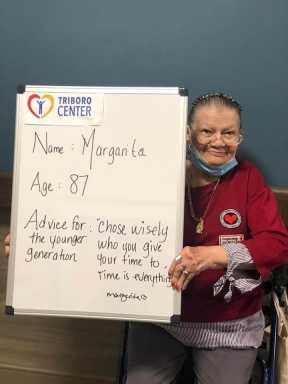 TRIBORO
CENTER
Name : Margarita
Age : 87
Advice for :
the younger
generation
"Chose wisely
who you give
your time to.
Time is everything
margarita